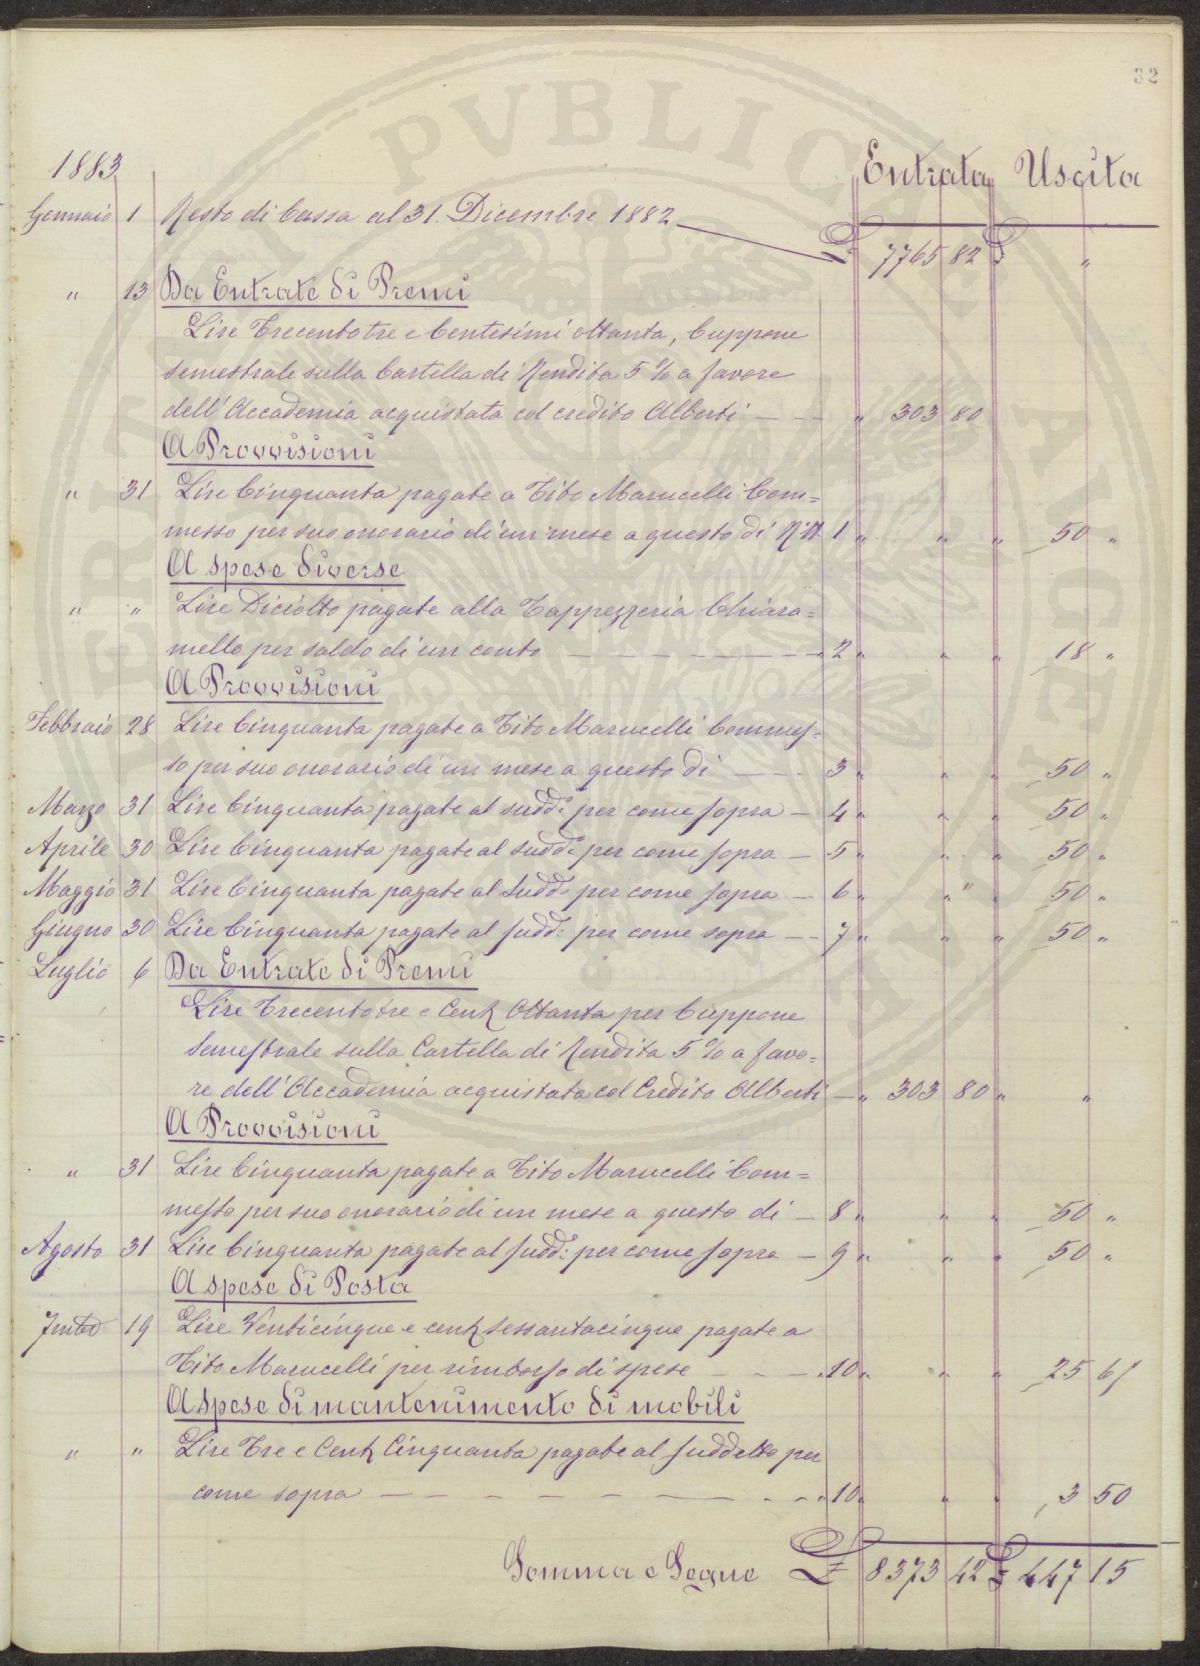 32
1883 Entrata Uscita
Gennaio 1 Resto di Cassa al 31. Dicembre 1882 £ 7765 82 £ "
" 13 Da Entrate di Premi
Lire Trecentotre e Centesimi ottanta, Cuppone
semestrale sulla Cartella di Rendita 5 % a favore
dell'Accademia acquistata col credito Alberti — — " 303 80
A Provvisioni
" 31 Lire Cinquanta pagate a Tito Marucelli Com=
messo per suo onorario di un mese a questo dì 1 " " " 50 "
A spese diverse
" " Lire Diciotto pagate alla Tappezzeria Chiara=
mello per saldo di un conto — — — — — — 2 " " " 18 "
A Provvisioni
Febbraio 28 Lire Cinquanta pagate a Tito Marucelli Commes=
so per suo onorario di un mese a questo dì — — 3 " " " 50 "
Marzo 31 Lire Cinquanta pagate al sudd.º per come sopra — 4 " " " 50 "
Aprile 30 Lire Cinquanta pagate al sudd.º per come sopra — 5 " " " 50 "
Maggio 31 Lire Cinquanta pagate al sudd.º per come sopra — 6 " " " 50 "
Giugno 30 Lire Cinquanta pagate al sudd: per come sopra — 7 " " " 50 "
Luglio 6 Da Entrate di Premi
Lire Trecentotre e Cent Ottanta per Cuppone
Semestrale sulla Cartella di Rendita 5 % a favo=
re dell'Accademia acquistata col Credito Alberti — " 303 80 " "
A Provvisioni
" 31 Lire Cinquanta pagate a Tito Marucelli Com=
messo per suo onorario di un mese a questo dì — 8 " " " 50 "
Agosto 31 Lire Cinquanta pagate al sudd: per come sopra — 9 " " " 50 "
A spese di Posta
19 Lire Venticinque e cent sessantacinque pagate a
Tito Marucelli per rimborso di spese — — — 10 " " " 25 65
A spese di mantenimento di mobili
" " Lire Tre e Cent Cinquanta pagate al suddetto per
come sopra — — — — — — — — 10 " " " 3 50
Somma e Segue £ 8373 42 £ 447 15